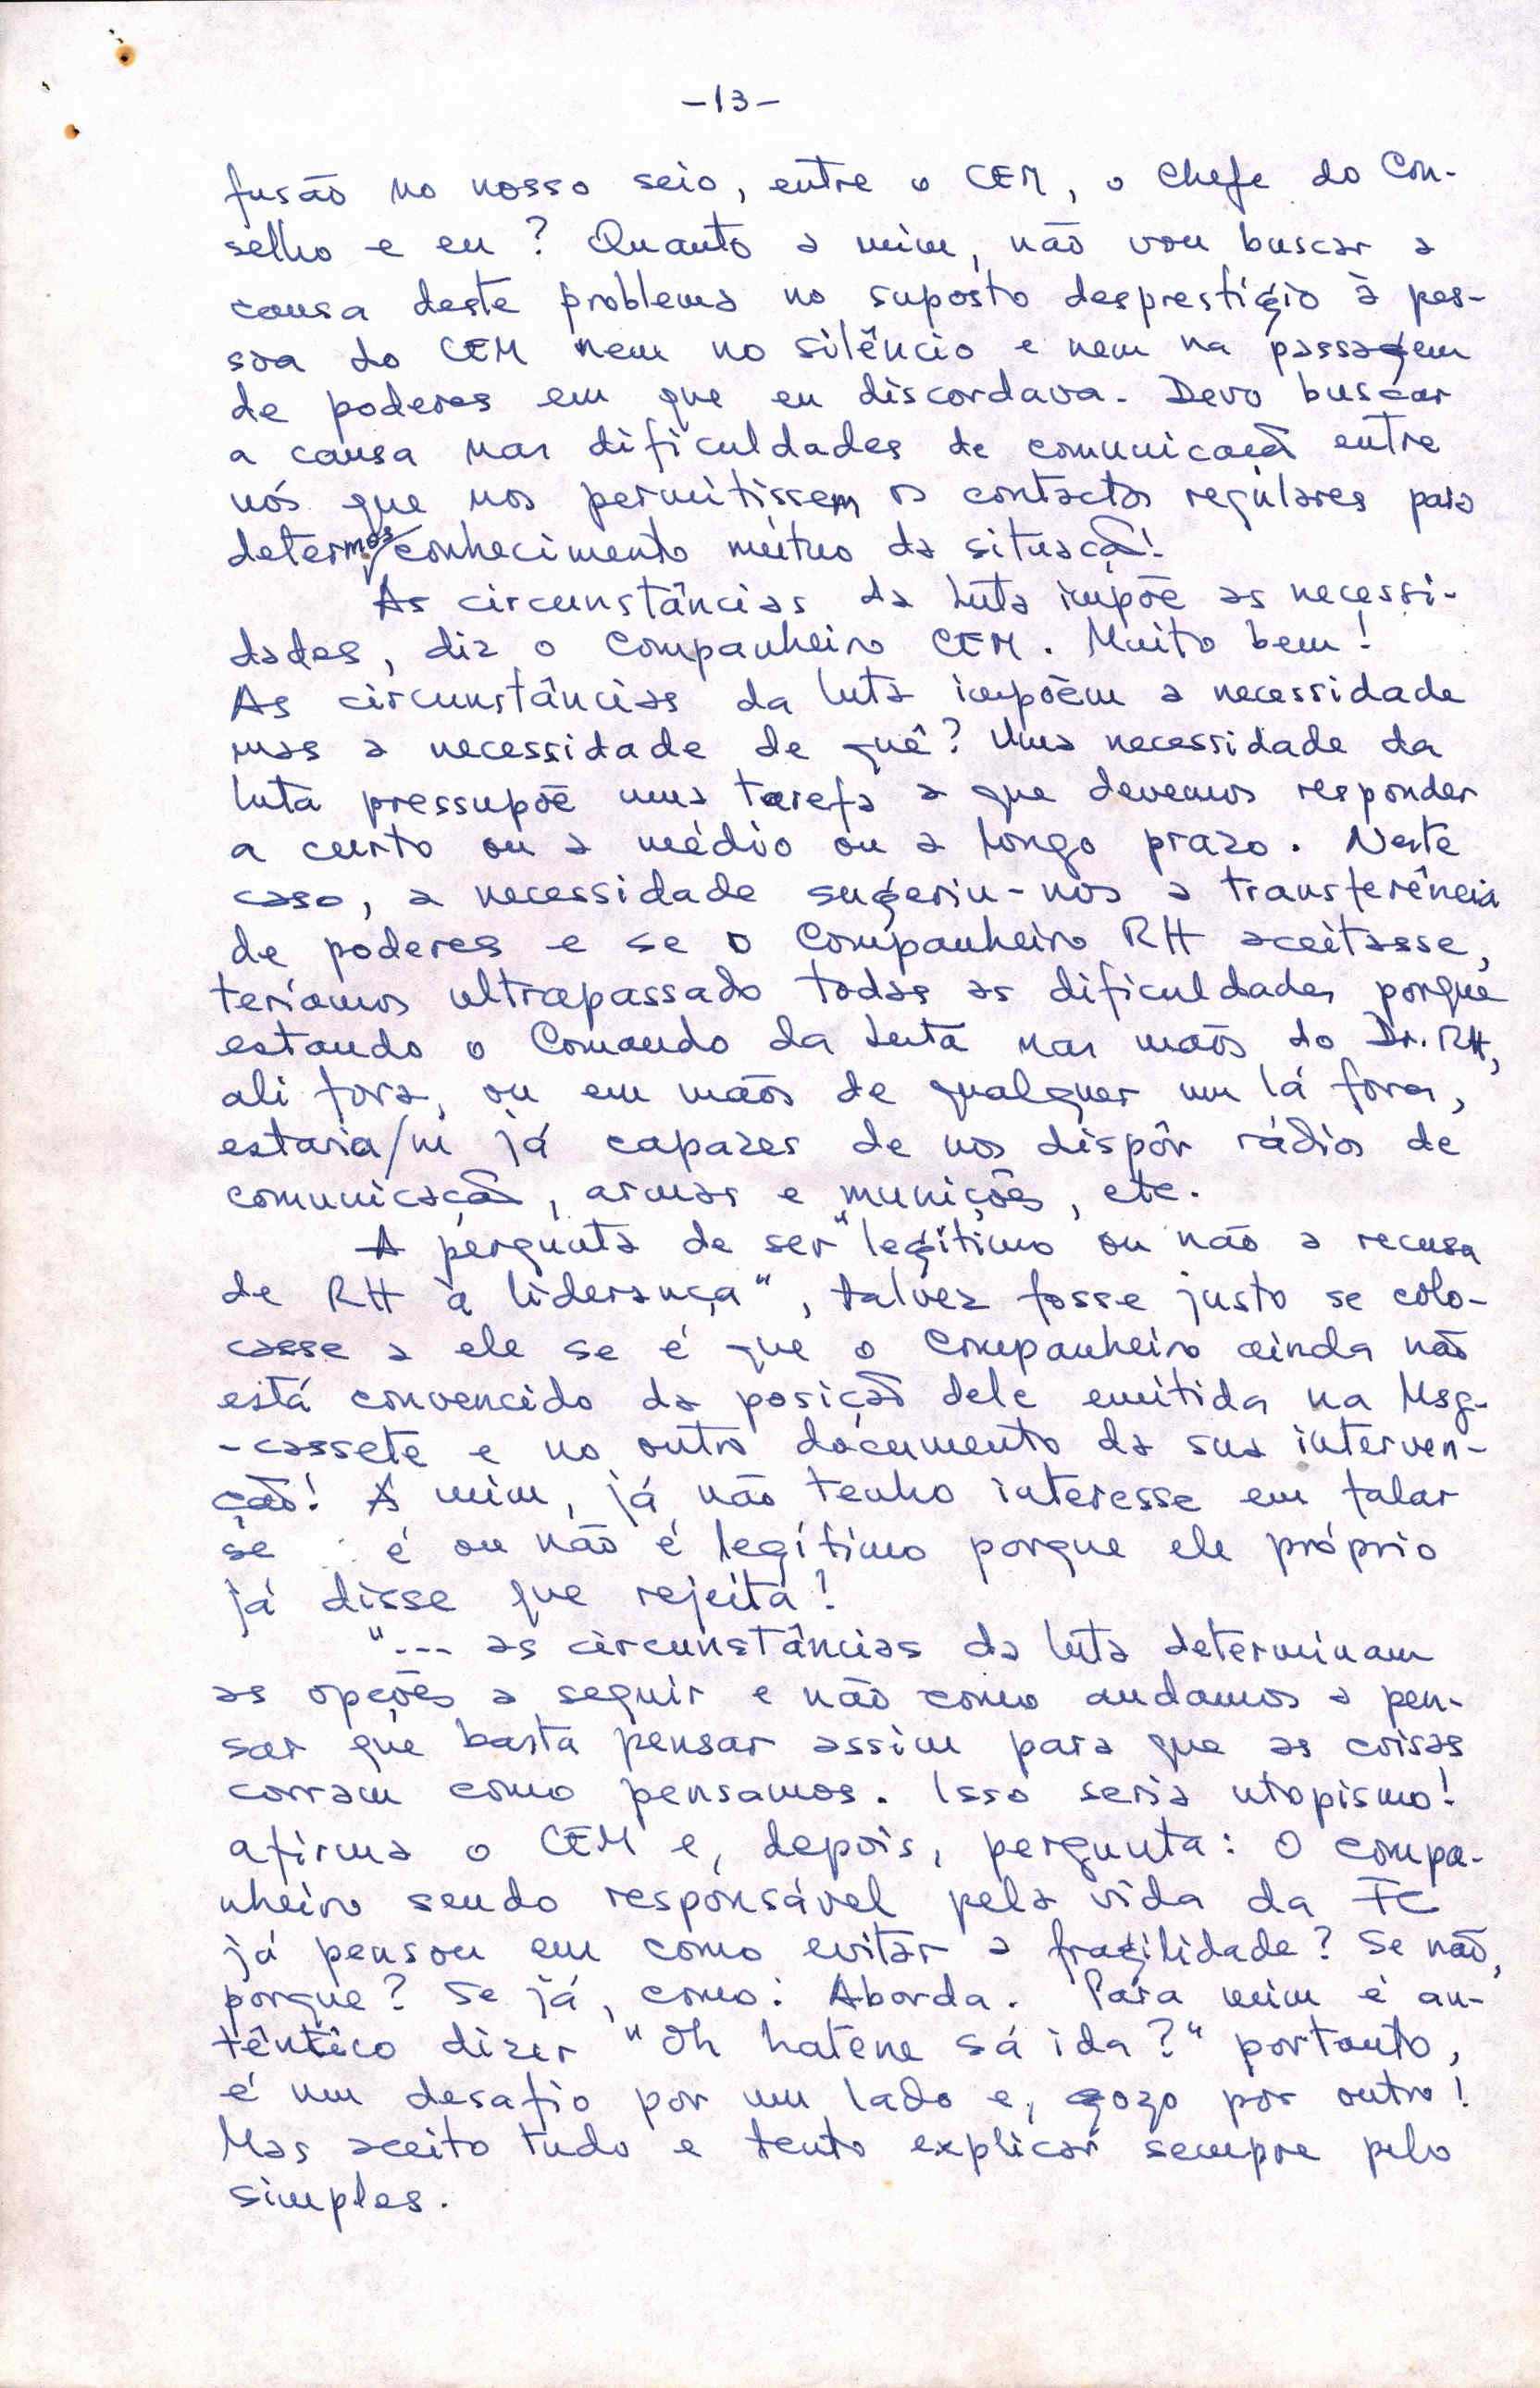 -13-
fusão no nosso seio, entre o CEM, o Chefe do Con-
selho e eu? Quanto a mim, não vou buscar a
causa deste problema no suposto desprestígio à pes-
soa do CEM nem no silêncio e nem na passagem
de poderes em que eu discordava. Devo buscar
a causa nas dificuldades de comunicação entre
nós que nos permitissem os contactos regulares para
determos conhecimento mútuo da situação!
As circunstâncias da Luta impõe as necessi-
dades, diz o Companheiro CEM. Muito bem!
As circunstâncias da luta impõem a necessidade
mas a necessidade de quê? Uma necessidade da
luta pressupõe uma tarefa a que devemos responder
a curto ou a médio ou a longo prazo. Neste
caso, a necessidade sugeriu-nos a transferência
de poderes e se o Companheiro RH aceitasse,
teríamos ultrapassado todas as dificuldades porque
estando o Comando da Luta nas mãos do Dr. RH,
ali fora, ou em mãos de qualquer um lá fora,
estaria/m já capazes de nos dispôr rádios de
comunicação, armas e munições, etc.
A pergunta de ser "legítimo ou não a recusa
de RH à liderança", talvez fosse justo se colo-
casse a ele se é que o Companheiro ainda não
está convencido da posição dele emitida na Msg-
-cassete e no outro documento da sua interven-
ção! A mim, já não tenho interesse em falar
se é ou não é legítimo porque ele próprio
já disse que rejeita!
"--- as circunstâncias da luta determinam
as opções a seguir e não como andamos a pen-
sar que basta pensar assim para que as coisas
corram como pensamos. Isso seria utopismo!
afirma o CEM e, depois, pergunta: O compa-
nheiro sendo responsável pela vida da FC
já pensou em como evitar a fragilidade? Se não,
porque? Se já, como: Aborda. Para mim é au-
têntico dizer "Oh hatene sá ida?" portanto,
é um desafio por um lado e, gozo por outro!
Mas aceito tudo e tento explicar sempre pelo
simples.